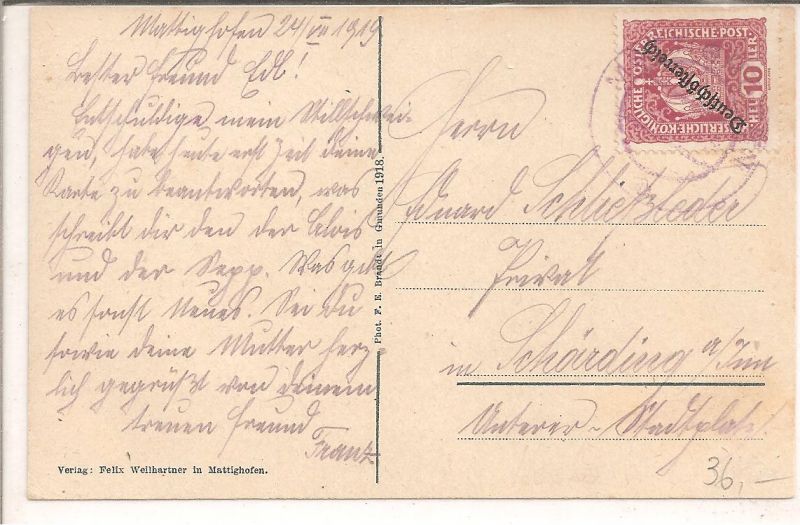 Mattighofen 24/III 1919
Bester Freund Edl!
Entschuldige mein Stillschwei-
gen, habe heute erst Zeit deine
Karte zu beantworten, was
schreibt dir den der Alois
und der Sepp. Was gibt
es sonst Neues. Sei du
sowie deine Mutter herz
lich gegrüßt von deinem
treuen Freund
Franz
Verlag: Felix Weilhartner in Mattighofen.
Phot. F. E. Brandt in Gmunden 1918.
KAISERLICHE KÖNIGLICHE ÖSTERREICHISCHE POST
10
HELLER
Deutschösterreich
Herrn
Eduard Schliefsleder
Privat
in Schärding a/Inn
Unterer-Stadtplatz
36,—